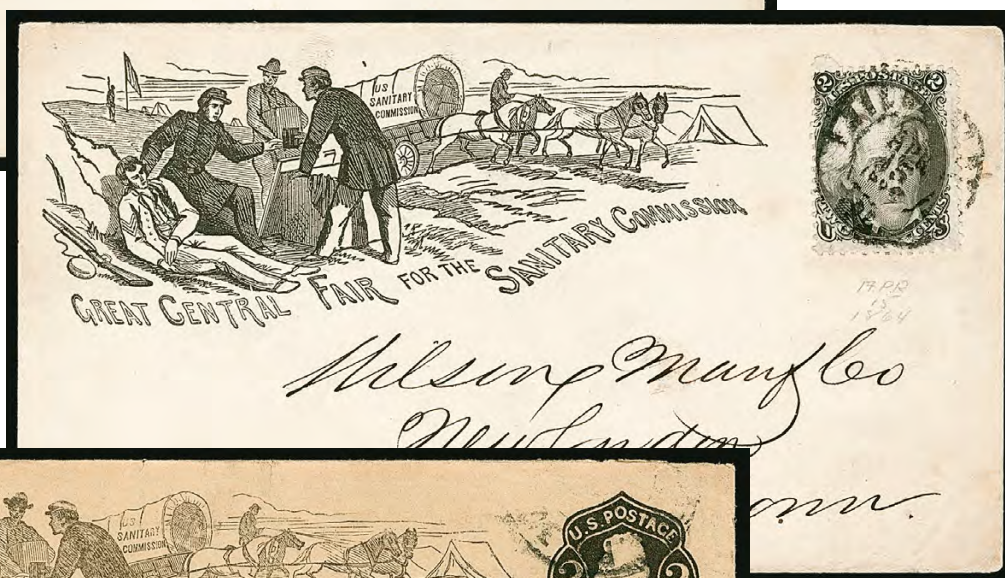 US
SANITARY
COMMISSION
GREAT CENTRAL FAIR FOR THE SANITARY COMMISSION
2 2
U S
APR
1864
Wilson Manf Co
New London
Conn.
US
SANITARY
COMMISSION
U.S. POSTAGE
2 2